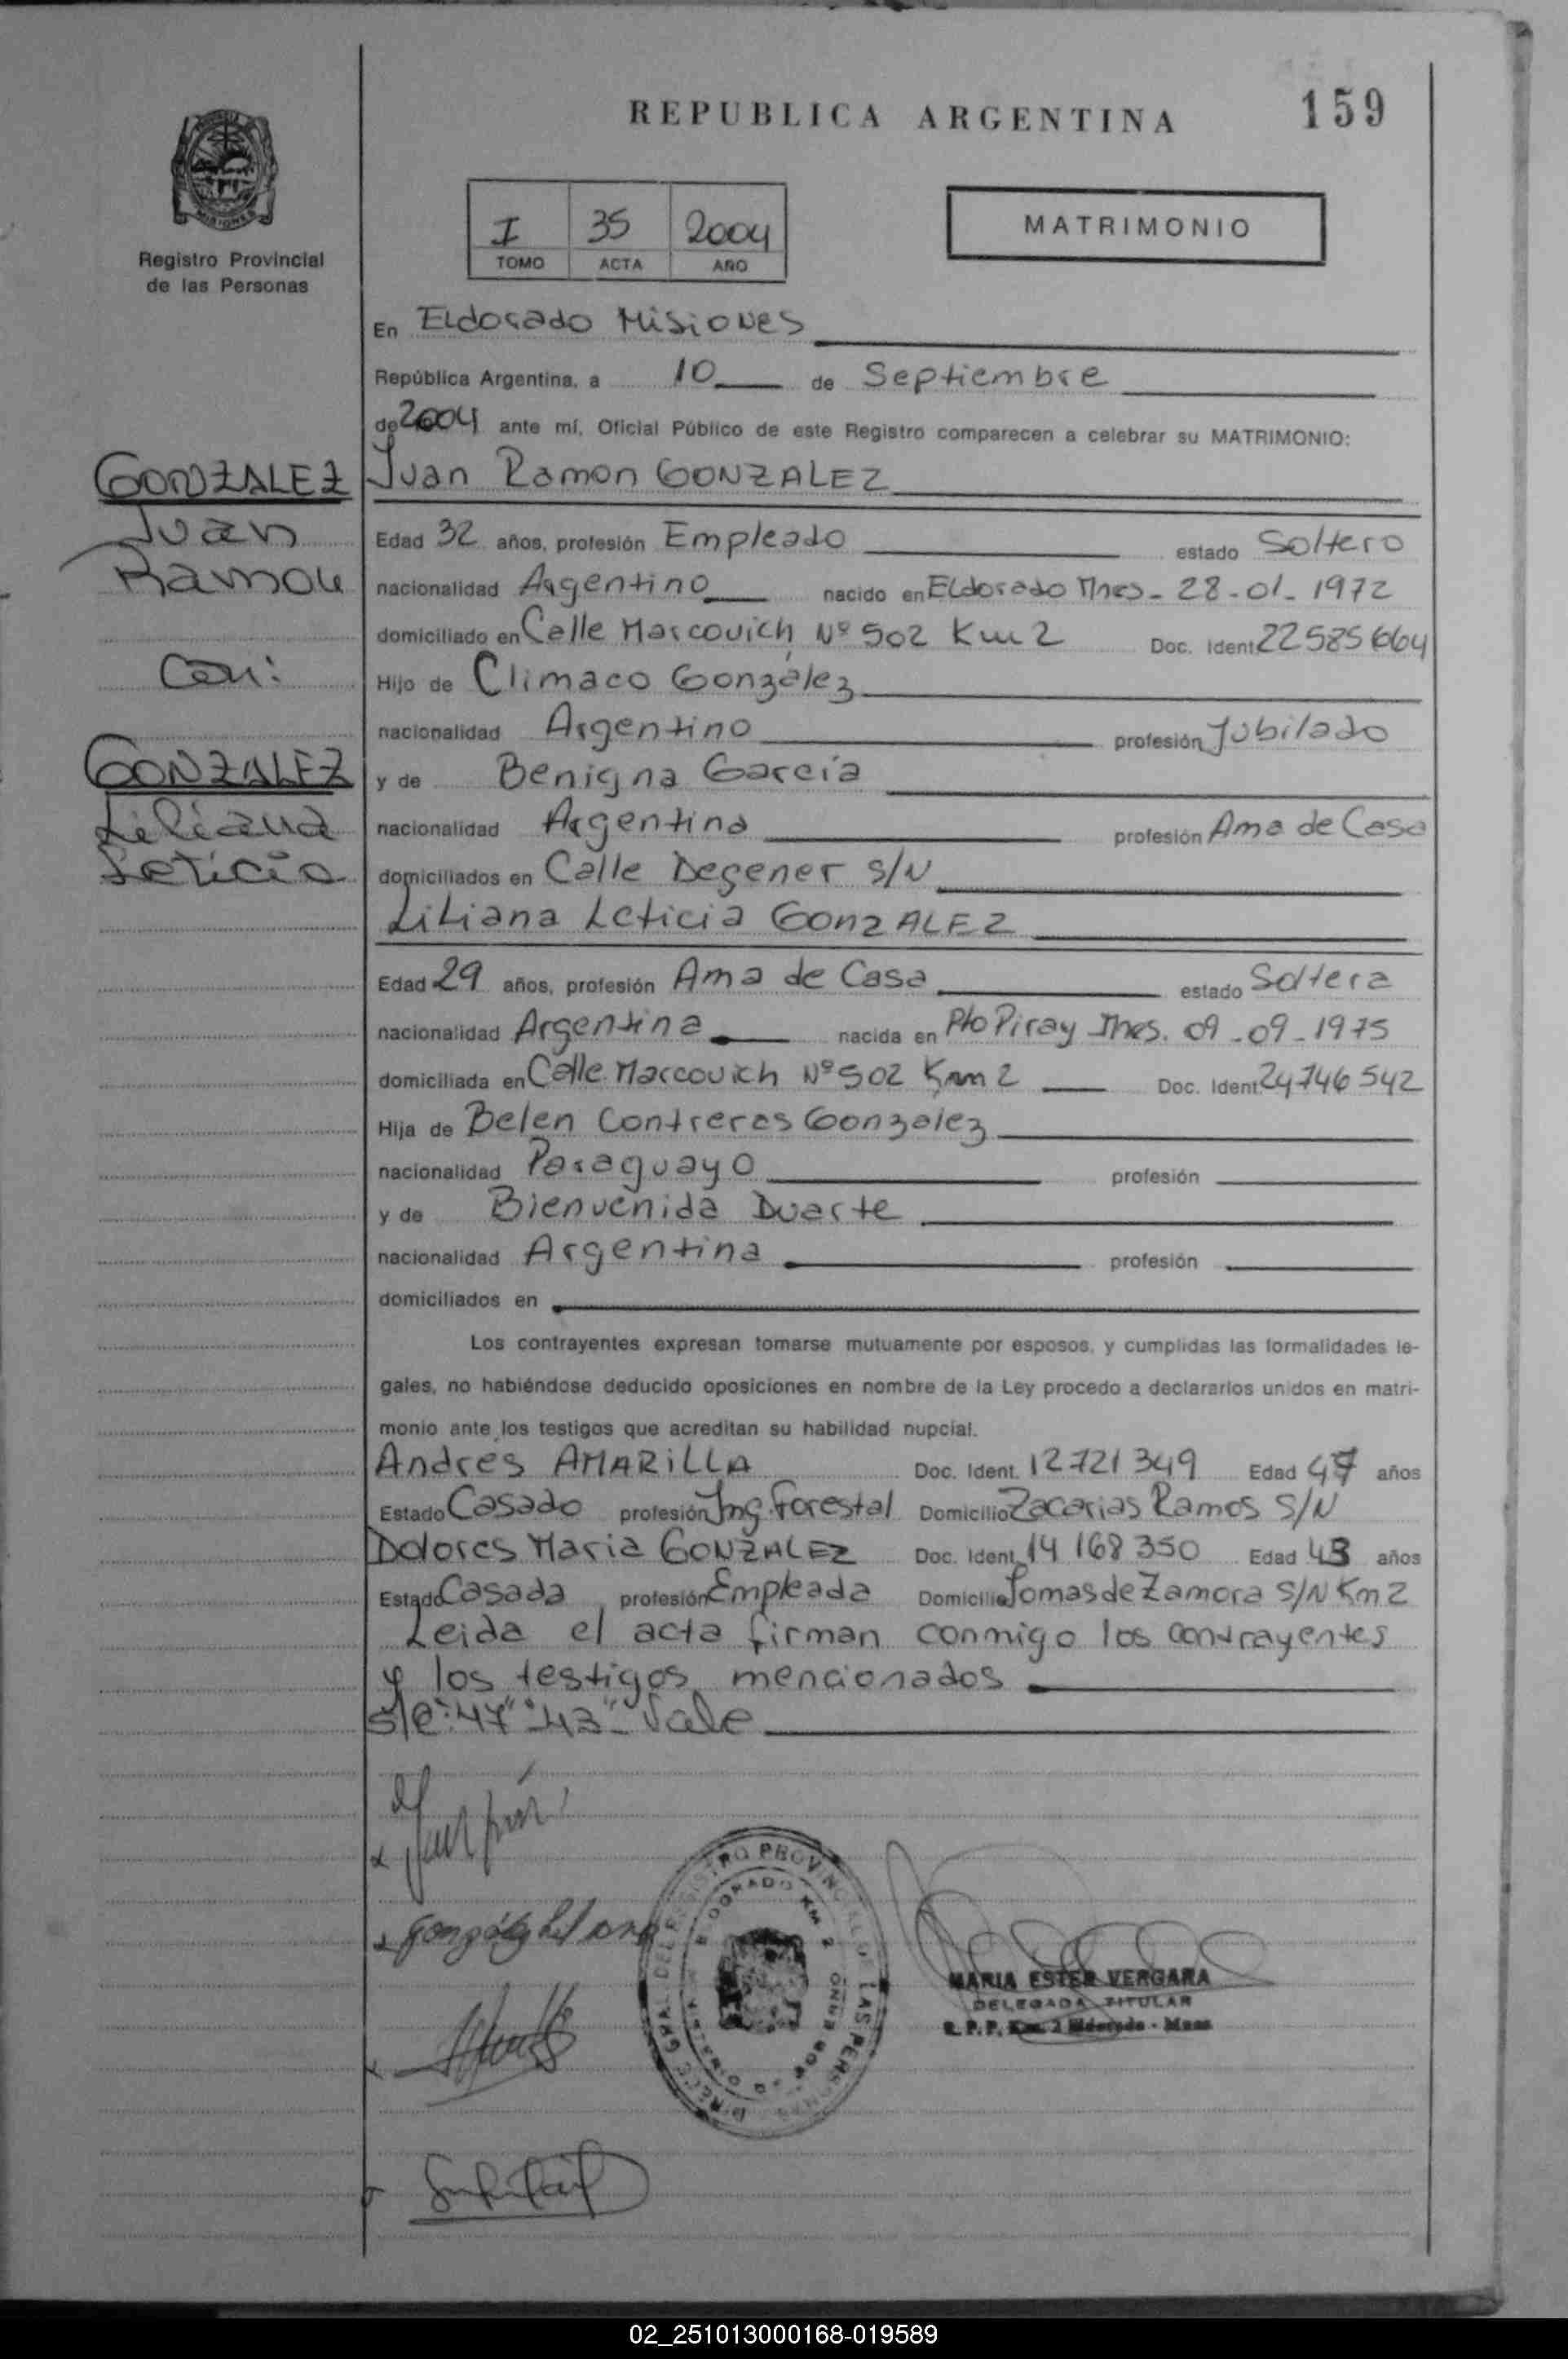 REPUBLICA ARGENTINA
159
MISIONES
Registro Provincial
de las Personas
I 35 2004
TOMO ACTA AÑO
MATRIMONIO
En Eldorado Misiones
República Argentina, a 10 de Septiembre
de 2004 ante mí, Oficial Público de este Registro comparecen a celebrar su MATRIMONIO:
GONZALEZ
Juan
Ramon
Con:
GONZALEZ
Liliana
Leticia
Juan Ramon GONZALEZ
Edad 32 años, profesión Empleado estado Soltero
nacionalidad Argentino nacido en Eldorado Mnes - 28-01-1972
domiciliado en Calle Marcovich Nº 502 Km 2 Doc. Ident. 22585664
Hijo de Climaco González
nacionalidad Argentino profesión Jubilado
y de Benigna García
nacionalidad Argentina profesión Ama de Casa
domiciliados en Calle Degener S/N
Liliana Leticia GONZALEZ
Edad 29 años, profesión Ama de Casa estado Soltera
nacionalidad Argentina nacida en Pto Piray Mnes. 09-09-1975
domiciliada en Calle Marcovich Nº 502 Km 2 Doc. Ident. 24746542
Hija de Belen Contreras Gonzalez
nacionalidad Paraguayo profesión
y de Bienvenida Duarte
nacionalidad Argentina profesión
domiciliados en
Los contrayentes expresan tomarse mutuamente por esposos, y cumplidas las formalidades le-
gales, no habiéndose deducido oposiciones en nombre de la Ley procedo a declararlos unidos en matri-
monio ante los testigos que acreditan su habilidad nupcial.
Andrés AMARILLA Doc. Ident. 12721349 Edad 47 años
Estado Casado profesión Ing. Forestal Domicilio Zacarias Ramos S/N
Dolores Maria GONZALEZ Doc. Ident. 14168350 Edad 43 años
Estado Casada profesión Empleada Domicilio Lomas de Zamora S/N Km 2
Leida el acta firman conmigo los contrayentes
y los testigos mencionados
S/R: "47" "43" - Vale
MARIA ESTER VERGARA
DELEGADA TITULAR
R.P.P. Km. 2 Eldorado - Mnes
02_251013000168-019589